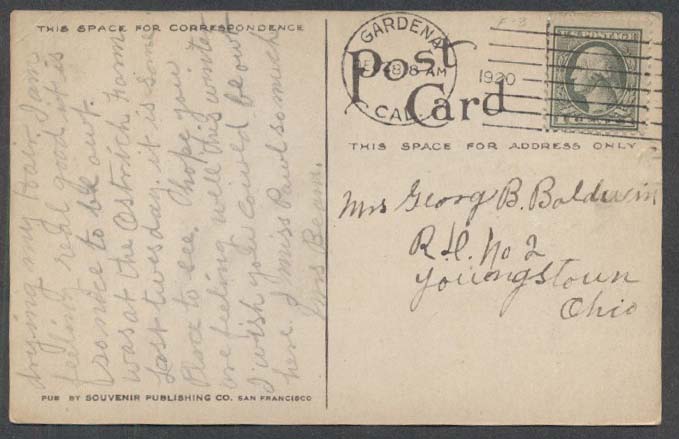 THIS SPACE FOR CORRESPONDENCE
drying my hair. I am
feeling real good it is
so nice to be out.
was at the Ostrich Farm
Last tuesday. it is some
Place to see. I hope you
are feeling well this winter
I wish you could be out
here. I miss Paul so much
Mrs Beam.
PUB BY SOUVENIR PUBLISHING CO. SAN FRANCISCO
GARDENA
28 8 AM
CAL.
1920
F-3
U.S. POSTAGE
Post
Card
THIS SPACE FOR ADDRESS ONLY
Mrs Georg B. Baldwin
R.D. No 2
Youngstown
Ohio